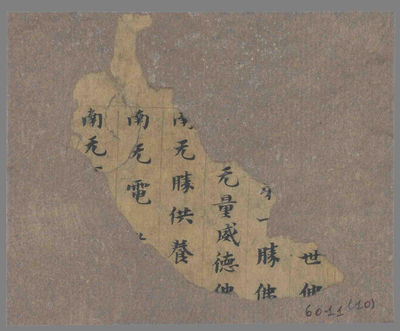 世佛
一勝佛
无量威德佛
南无勝供養
南无電
南无
6011(10)